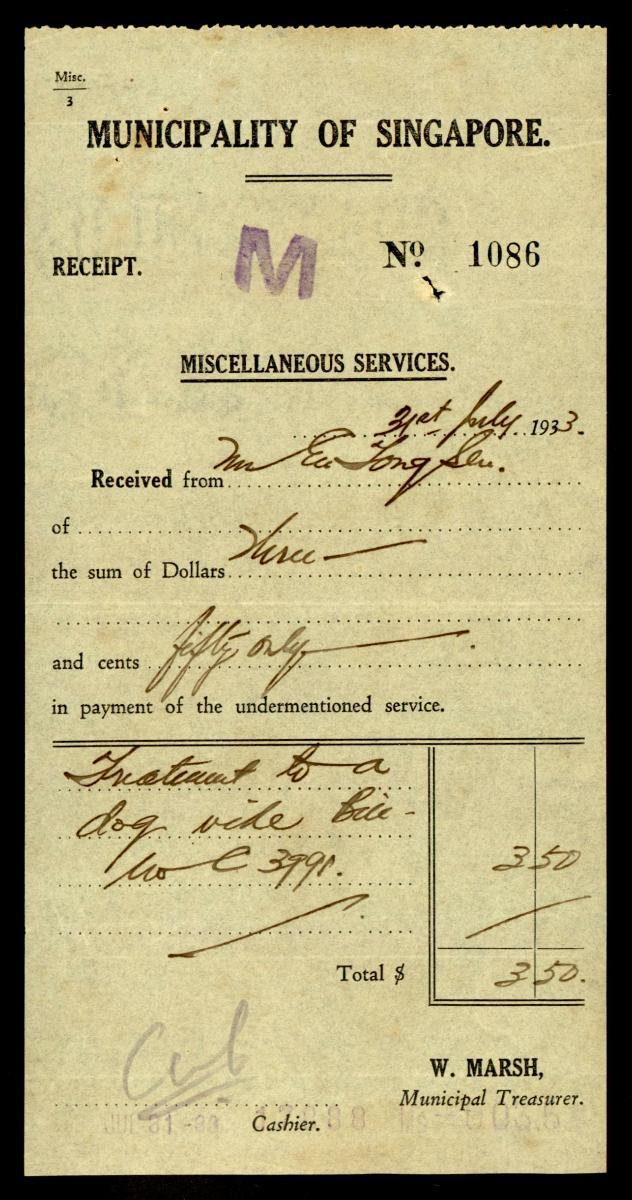 Misc.
3
MUNICIPALITY OF SINGAPORE.
RECEIPT.
M
No. 1086
MISCELLANEOUS SERVICES.
31st July 1933.
Received from Mr Eu Tong Sen.
of
the sum of Dollars Three
and cents fifty only
in payment of the undermentioned service.
Treatment to a
dog vide Bill
No C 3991. 3 50
Total $ 3 50.
W. MARSH,
Municipal Treasurer.
JUL 31 -33
Cashier.